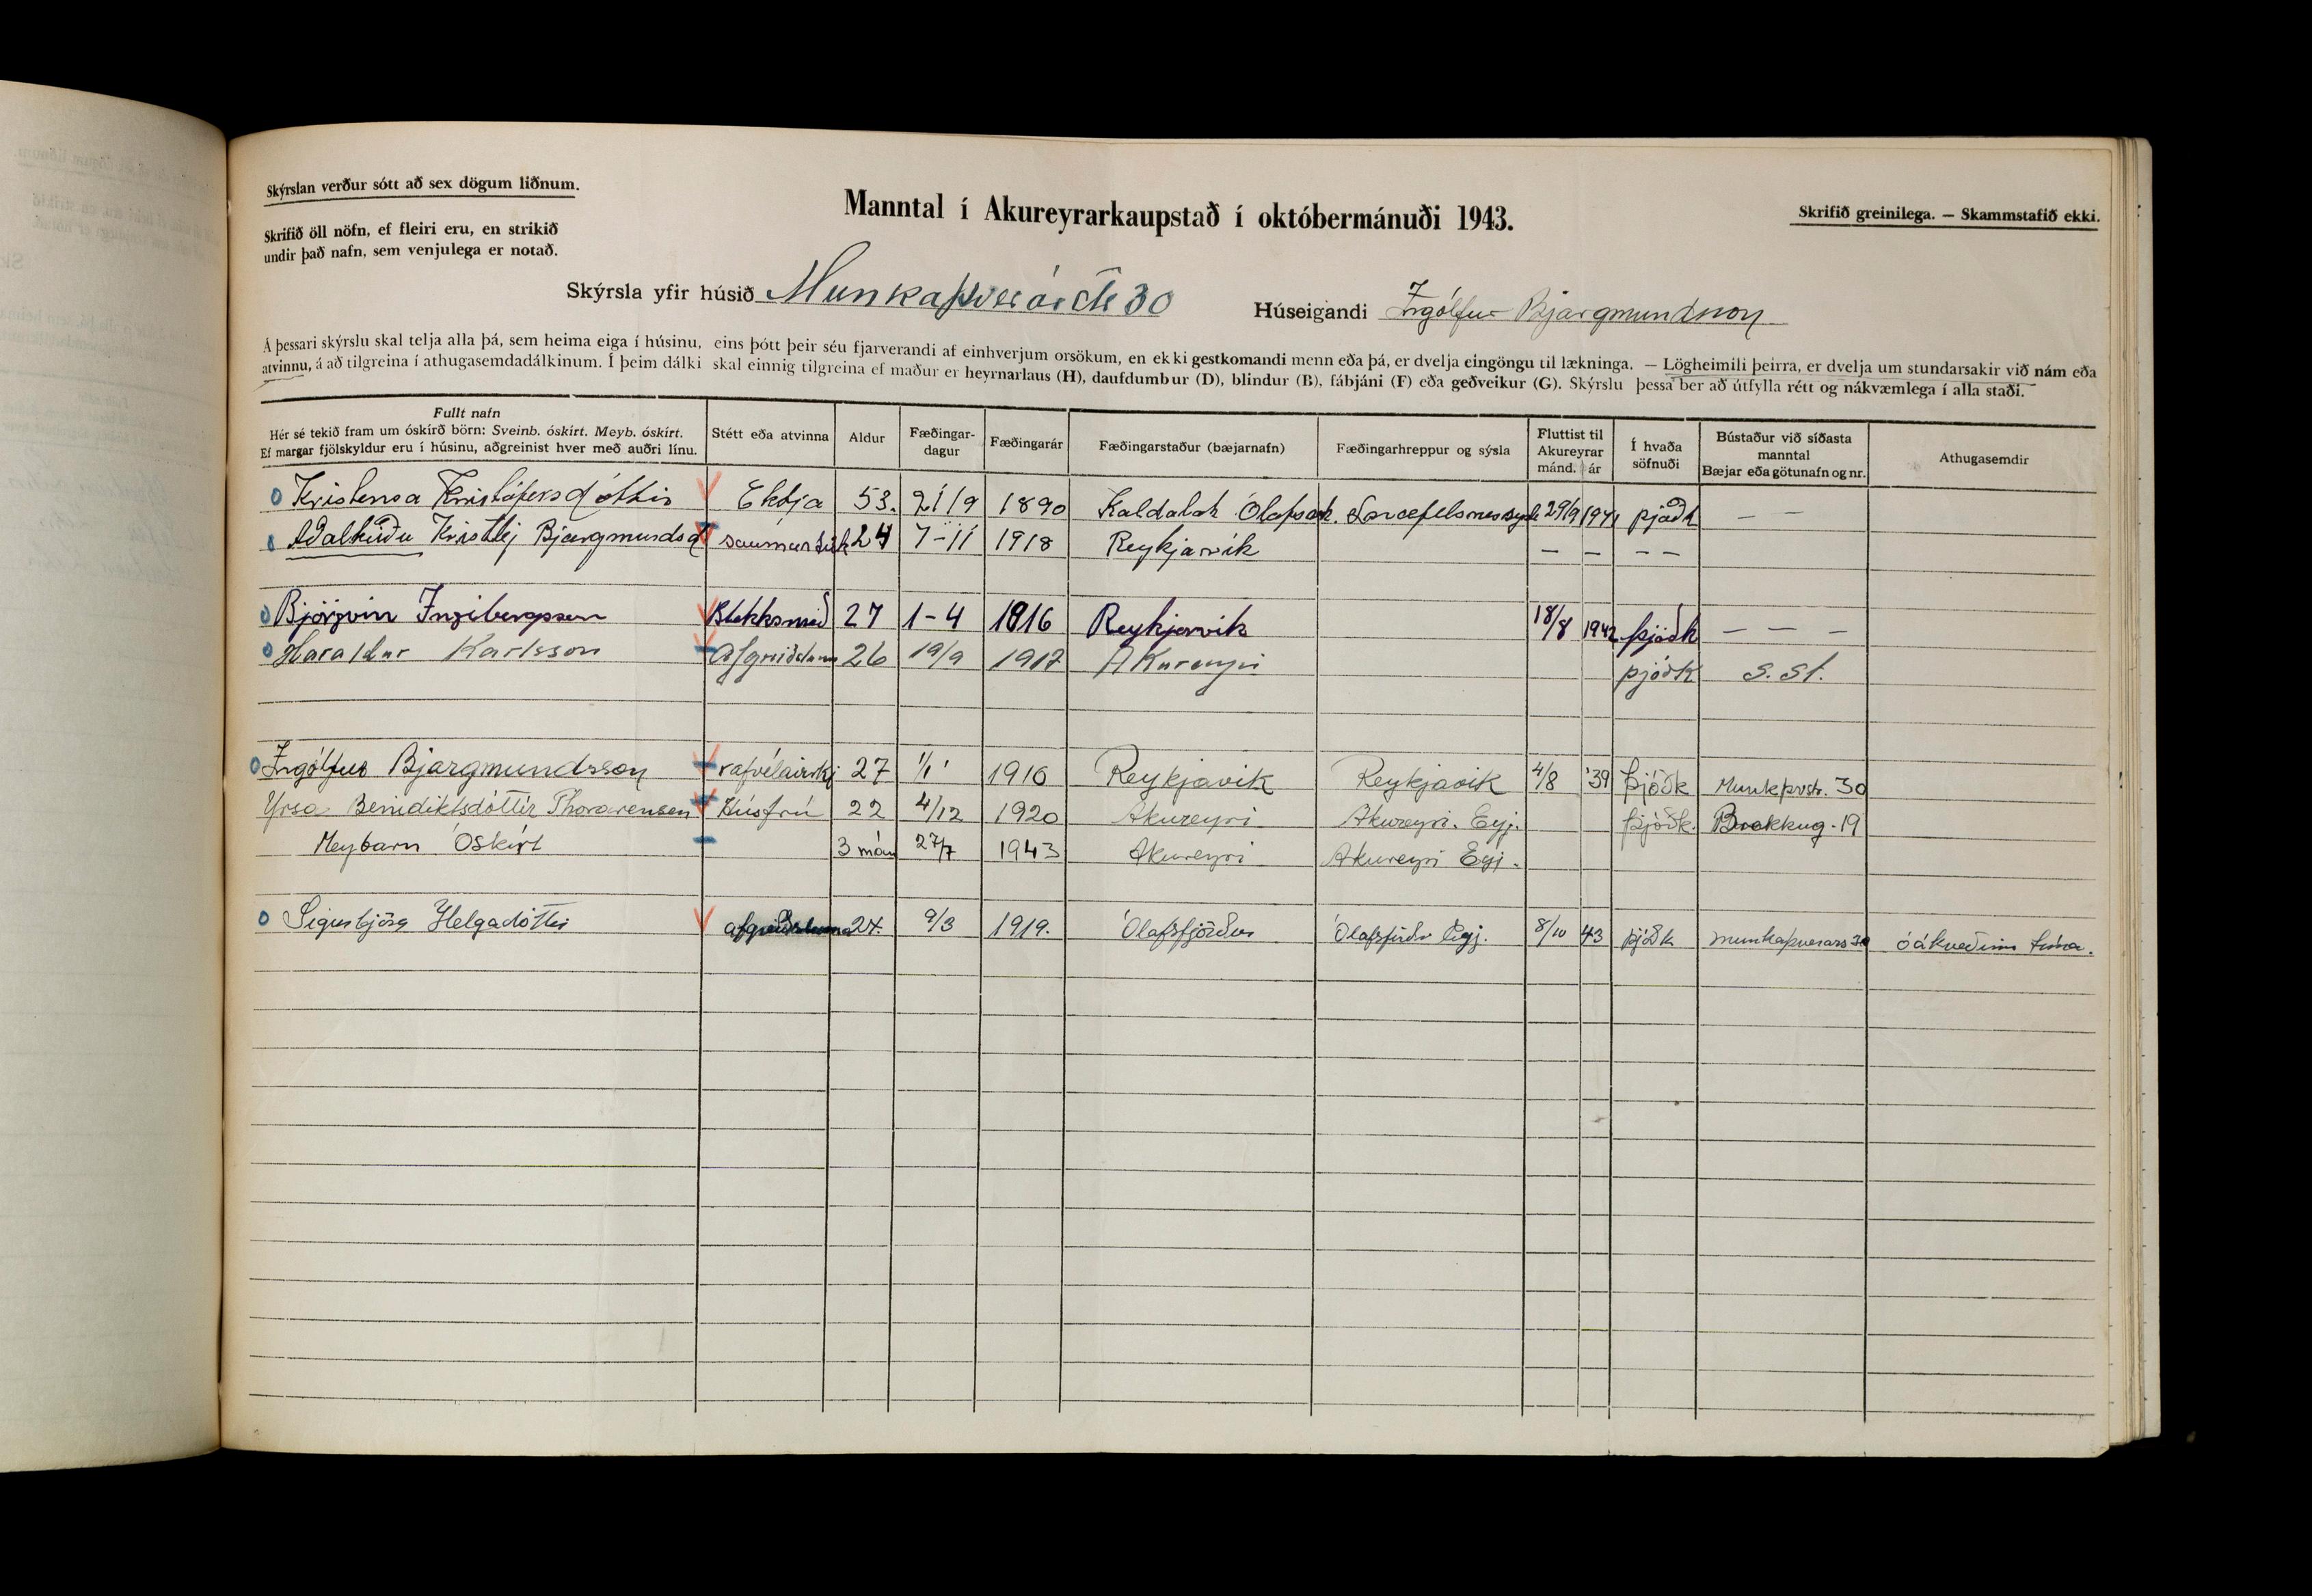 Skýrslan verður sótt að sex dögum liðnum.
Skrifið öll nöfn, ef fleiri eru, en strikið
undir það nafn, sem venjulega er notað.
Manntal í Akureyrarkaupstað í októbermánuði 1943.
Skrifið greinilega. — Skammstafið ekki.
Skýrsla yfir húsið Munkaþverárstr 30 Húseigandi Ingólfur Bjargmundsson
Á þessari skýrslu skal telja alla þá, sem heima eiga í húsinu, eins þótt þeir séu fjarverandi af einhverjum orsökum, en ekki gestkomandi menn eða þá, er dvelja eingöngu til lækninga. — Lögheimili þeirra, er dvelja um stundarsakir við nám eða
atvinnu, á að tilgreina í athugasemdadálkinum. Í þeim dálki skal einnig tilgreina ef maður er heyrnarlaus (H), daufdumbur (D), blindur (B), fábjáni (F) eða geðveikur (G). Skýrslu þessa ber að útfylla rétt og nákvæmlega í alla staði.
Fullt nafn
Hér sé tekið fram um óskírð börn: Sveinb. óskírt. Meyb. óskírt.
Ef margar fjölskyldur eru í húsinu, aðgreinist hver með auðri línu.
Stétt eða atvinna
Aldur
Fæðingar-
dagur
Fæðingarár
Fæðingarstaður (bæjarnafn)
Fæðingarhreppur og sýsla
Fluttist til
Akureyrar
mánd. ár
Í hvaða
söfnuði
Bústaður við síðasta
manntal
Bæjar eða götunafn og nr.
Athugasemdir
Kristensa Kristófersdóttir Ekkja 53. 21/9 1890 Kaldalak Ólafsvk. Snæfellsnessysl 29/9 1941 þjóðk — —
Aðalheiður Kristlej Bjargmundsd saumastúlk 24 7-11 1918 Reykjavík — — — —
Björgvin Ingibergsson Blikksmið 27 1-4 1916 Reykjavík 18/8 1942 þjóðk — — —
Haraldur Karlsson Afgreiðslum 26 19/9 1917 Akureyri þjóðk S. St.
Ingólfur Bjargmundsson rafvélavirkj 27 1/1 1916 Reykjavík Reykjavík 4/8 '39 Þjóðk Munkþvstr. 30
Yrsa Benidiktsdóttir Thorarensen Húsfrú 22 4/12 1920 Akureyri Akureyri. Eyj. Þjóðk. Brekkug. 19
Meybarn Óskírt 3 mán 27/7 1943 Akureyri Akureyri Eyj.
Sigurbjörg Helgadóttir afgreiðsluma 24. 9/3 1919. Ólafsfjörður Ólafsfirði Eyj. 8/10 43 þjóðk Munkaþverárs 30 óákveðinn tíma.